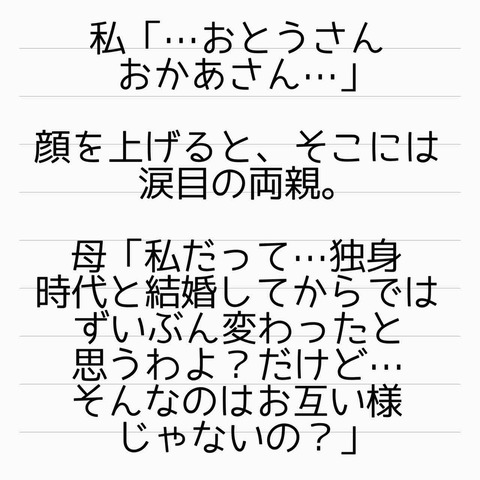 私「…おとうさん
おかあさん…」
顔を上げると、そこには
涙目の両親。
母「私だって…独身
時代と結婚してからでは
ずいぶん変わったと
思うわよ？だけど…
そんなのはお互い様
じゃないの？」